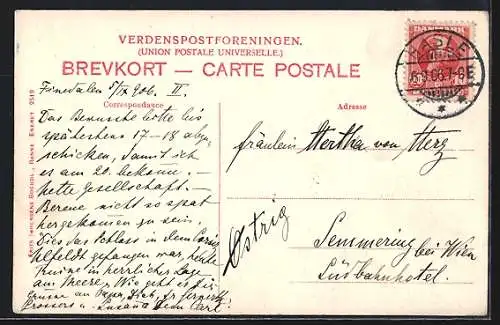 VERDENSPOSTFORENINGEN.
(UNION POSTALE UNIVERSELLE.)
BREVKORT — CARTE POSTALE
Correspondance
Adresse
DANMARK
HASLE
Finedalen 5/IX 906. II.
Das Gewünschte bitte bis
spätestens 17–18 abzu-
schicken, damit ich
es am 20. bekomm. –
Nette Gesellschaft. –
Bereue nicht so spät
hergekommen zu sein.
Dies das Schloss in dem
gefangen war, heute
Ruine in herrlicher Lage
am Meere. Wie geht es
Grüsse an
u. Carl
Fräulein Hertha von Herz
Östrig
Semmering bei Wien
Südbahnhotel.